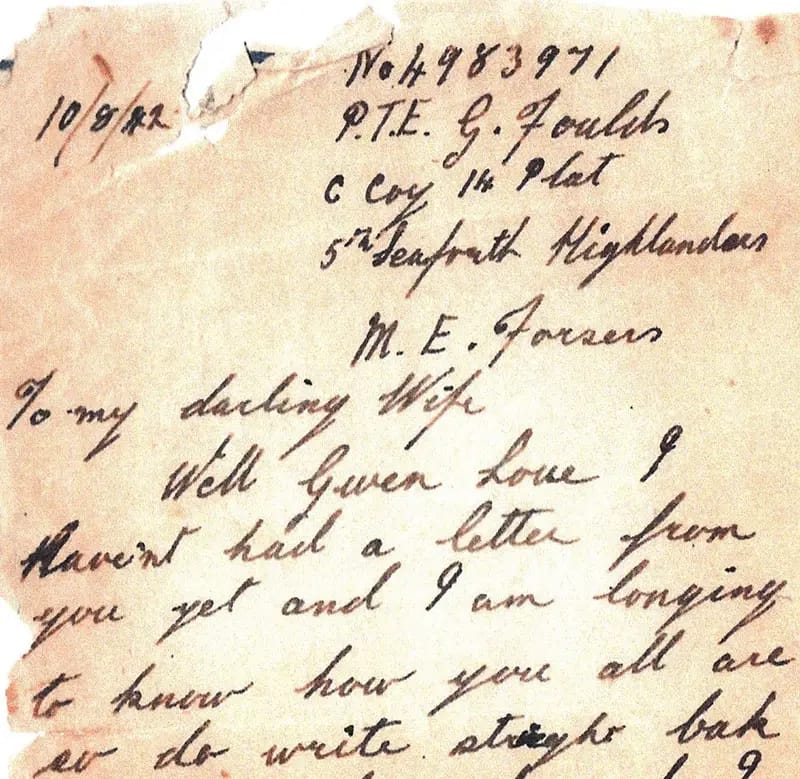 No 4983971
10/8/42
P.T.E. G. Foulds
C Coy 14 Plat
5th Seaforth Highlanders
M. E. Forsers
To my darling Wife
Well Gwen Love I
Haveint had a letter from
you yet and I am longing
to know how you all are
so do write straght bak